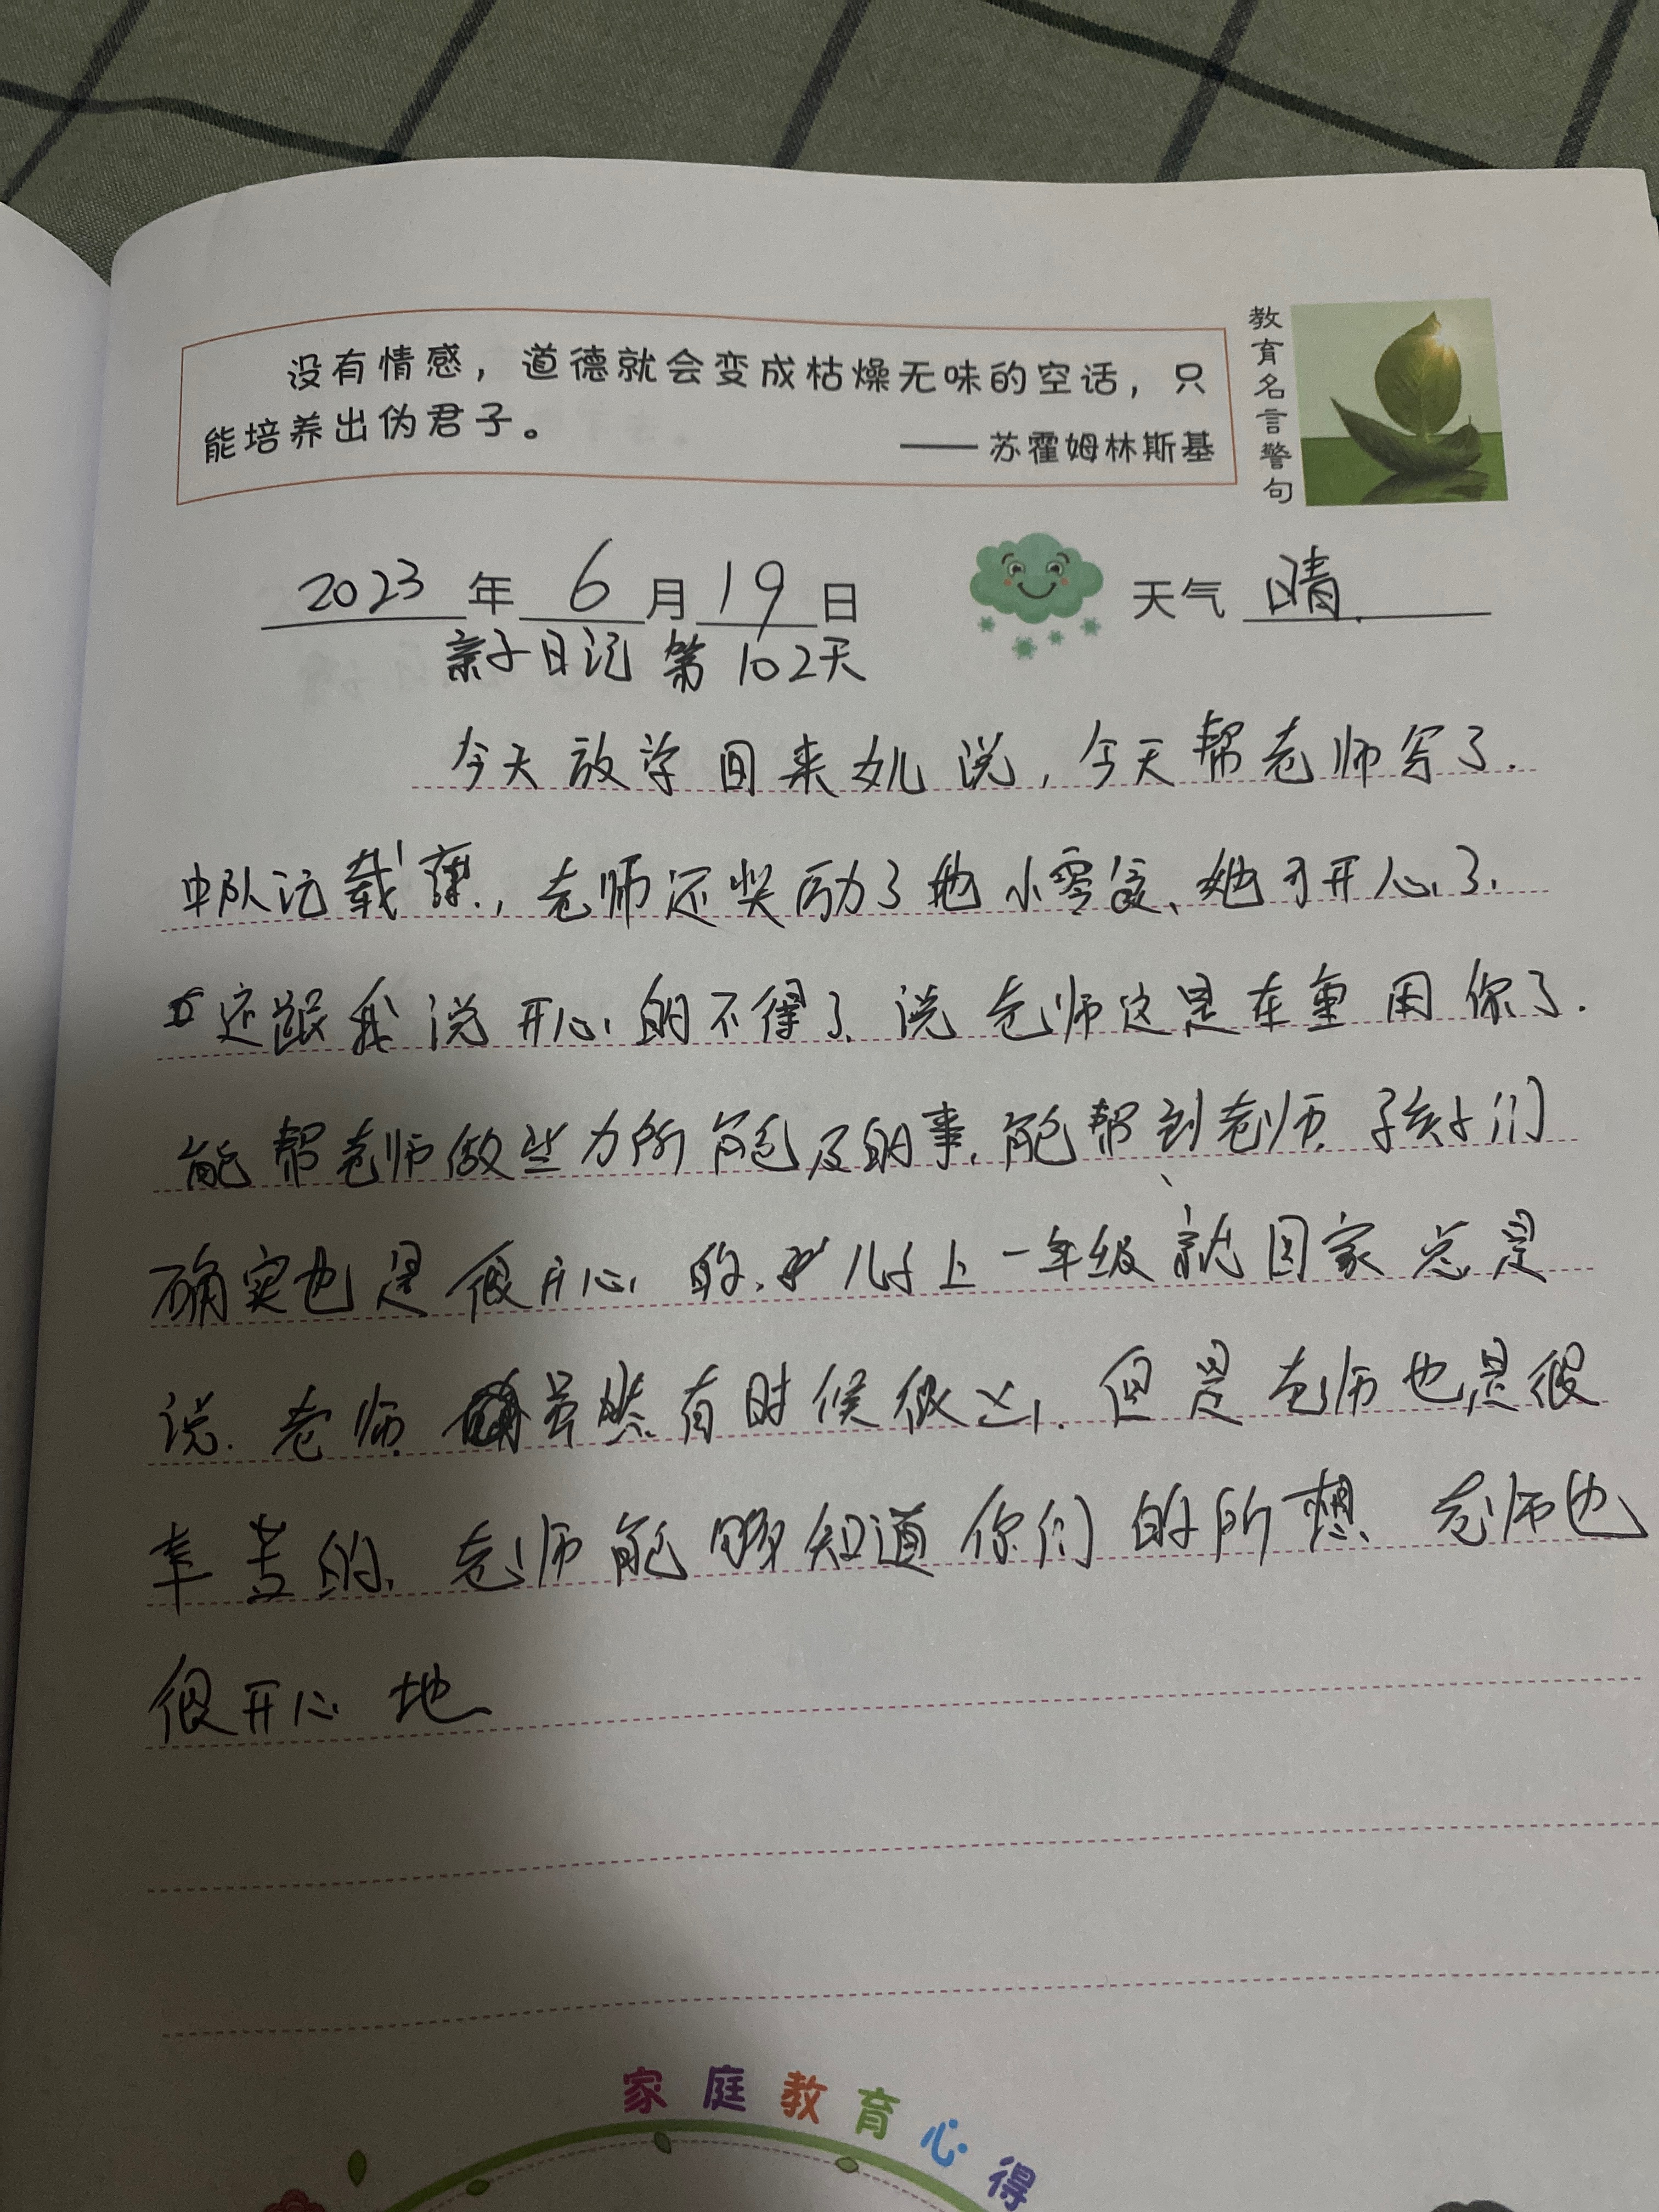 没有情感，道德就会变成枯燥无味的空话，只
能培养出伪君子。
——苏霍姆林斯基
教育名言警句
2023年6月19日
天气 晴.
亲子日记 第102天
今天放学回来女儿说，今天帮老师写了.
中队记载簿.，老师还奖励了她小零食、她可开心了.
还跟我说开心的不得了、说老师这是在重用你了.
能帮老师做些力所能及的事.能帮到老师、孩子们
确实也是很开心的.儿子上一年级就回家总是
说.老师虽然有时候很凶.但是老师也是很
辛苦的、老师能够知道你们的所想、老师也
很开心地
家庭教育心得